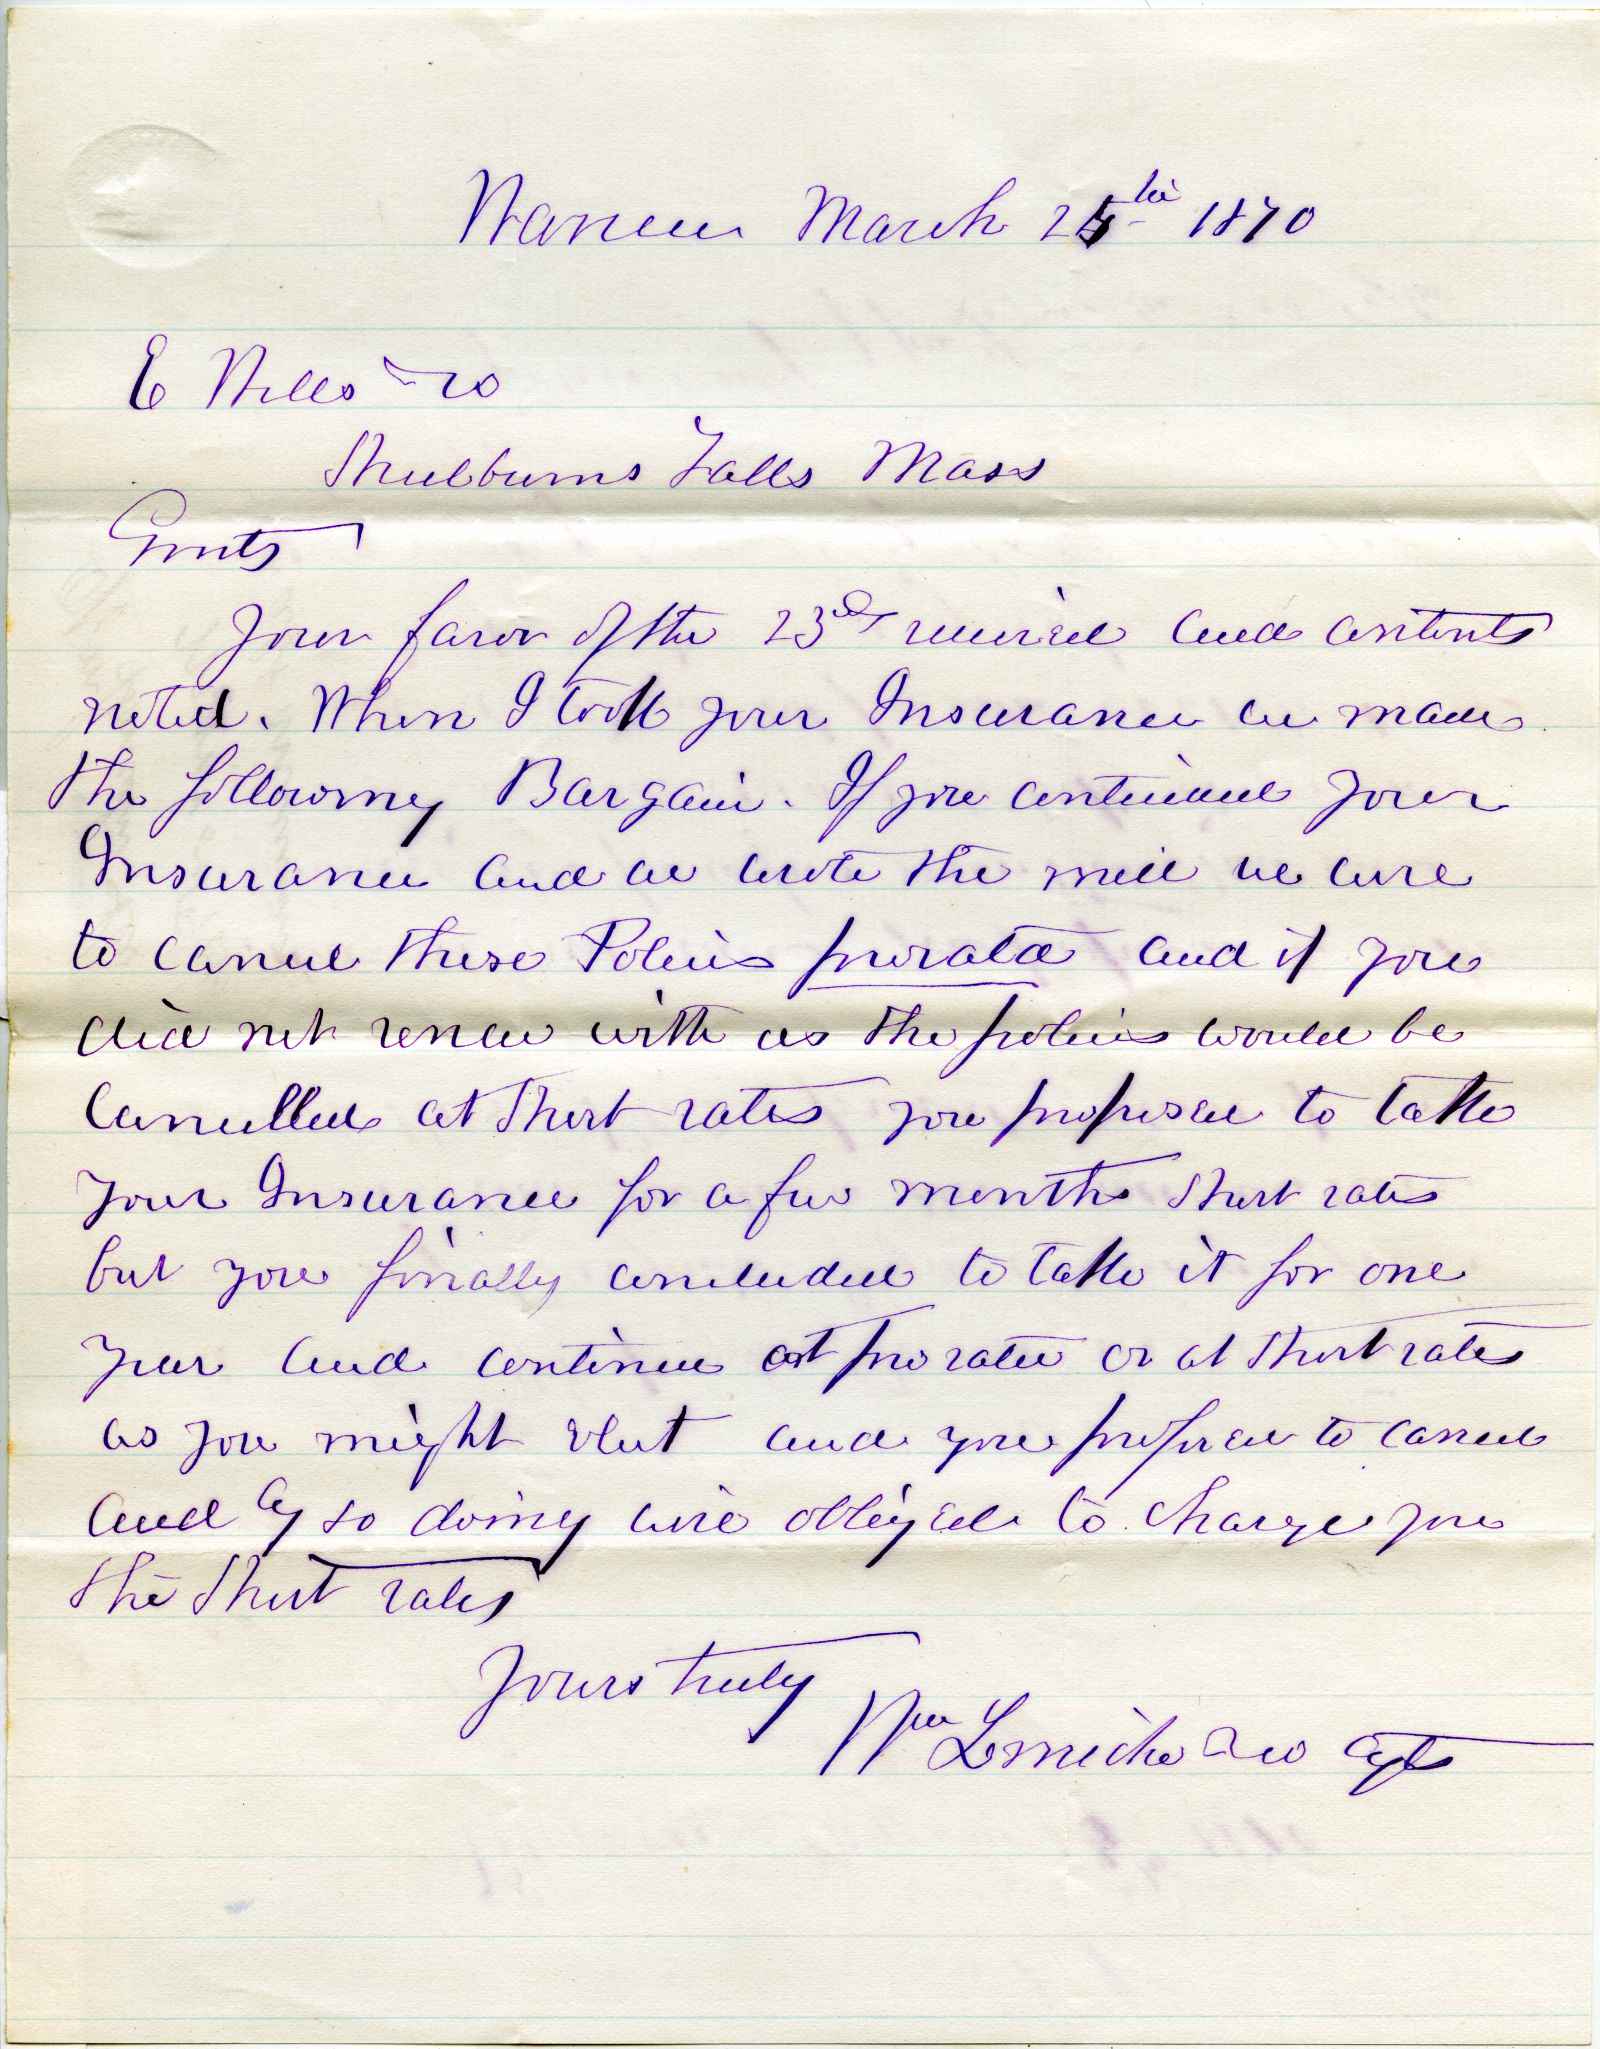 Warren March 25th 1870
E Wells & Co
Shelburns Falls Mass
Gents
Your favor of the 23d received and contents
noted. When I took your Insurance we made
the following Bargain. If you continued your
Insurance and we wrote the mill we were
to cancel these Policies prorata and if you
did not renew with us the policies would be
Cancelled at Short rates you proposed to take
your Insurance for a few months Short rates
but you finally concluded to take it for one
year and continue at pro rata or at Short rates
as you might elect and you prefered to cancel
and by so doing were obliged to charge you
the Short rates
Yours truly
Wm & Co Agts